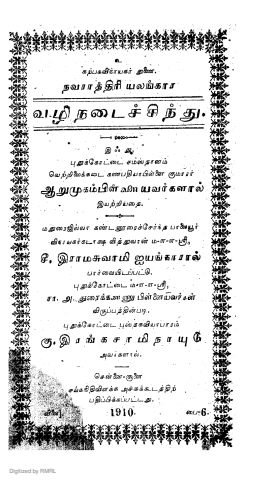 உ
கற்பகவிநாயகர் துணை.
நவராத்திரி யலங்கார
வழிநடைச்சிந்து.
இஃது
புதுக்கோட்டை சமஸ்தானம்
வெற்றிலைக்கடை கணபதியாபிள்ளை குமாரர்
ஆறுமுகம்பிள்ளை யவர்களால்
இயற்றியதை.
மதுரைஜில்லா
வித்துவான் ம-ள-ள-ஸ்ரீ,
இராமசுவாமி ஐயங்காரால்
பார்வையிடப்பட்டு.
புதுக்கோட்டை ம-ள-ள-ஸ்ரீ,
சா. அ. துரைக்கண்ணுபிள்ளையவர்கள்
விருப்பத்தின்படி.
புதுக்கோட்டை புஸ்தகவியாபாரம்
கு. இரங்கசாமிநாயுடு
அவர்களால்.
சென்னை:
சங்கநிதிவிளக்க அச்சுக்கூடத்திற்
பதிப்பிக்கப்பட்டது.
விலை] 1910. [பை-6.
Digitized by RMRL